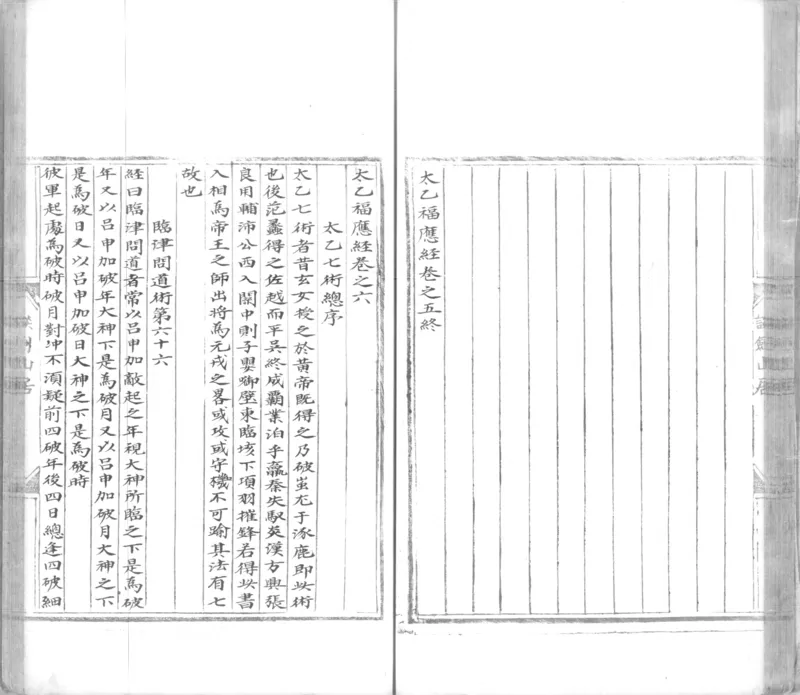 太乙福應経卷之五終
太乙福應経卷之六
太乙七術總序
太乙七術者昔玄女授之於黄帝既得之乃破蚩尤于涿鹿即此術
也後范蠡得之佐越而平吴終成覇業洎乎嬴秦失馭英漢方興張
良用輔沛公西入関中則子嬰啣璧東臨垓下項羽摧鋒若得此書
入相為帝王之師出将為元戎之畧或攻或守機不可踰其法有七
故也
臨津問道術第六十六
経曰臨津問道者常以吕申加敵起之年視大神所臨之下是為破
年又以吕申加破年大神下是為破月又以吕申加破月大神之下
是為破日又以吕申加破日大神之下是為破時
彼軍起處為破時破月對冲不須疑前四破年後四日總逢四破細